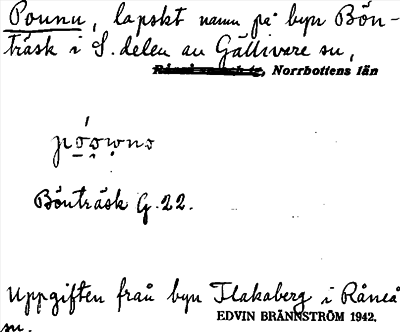 Pounu, lapskt namn på byn Bön-
träsk i S. delen av Gällivare sn,
Norrbottens län
Bönträsk G. 22.
Uppgiften från byn Flakaberg i Råneå
sn.
EDVIN BRÄNNSTRÖM 1942.